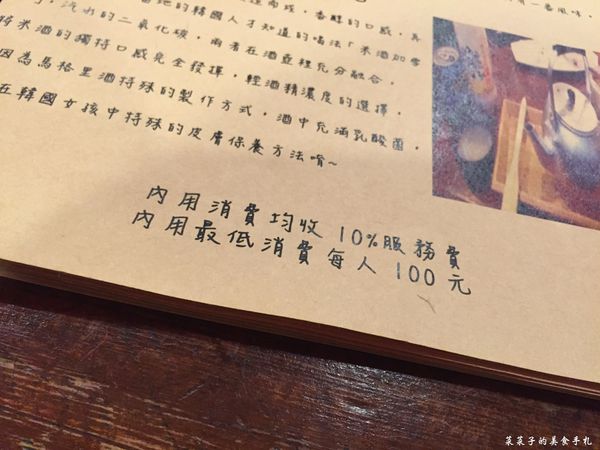 香醇的口感，真
，汽水的二氧化碳，兩者在酒壺裡充分融合，
將米酒的獨特口感完全發揮，輕酒精濃度的選擇，
因為馬格里酒特殊的製作方式，酒中充滿乳酸菌，
在韓國女孩中特殊的皮膚保養方法唷~
一番風味，
內用消費均收 10%服務費
內用最低消費每人 100 元
菜菜子的美食手札